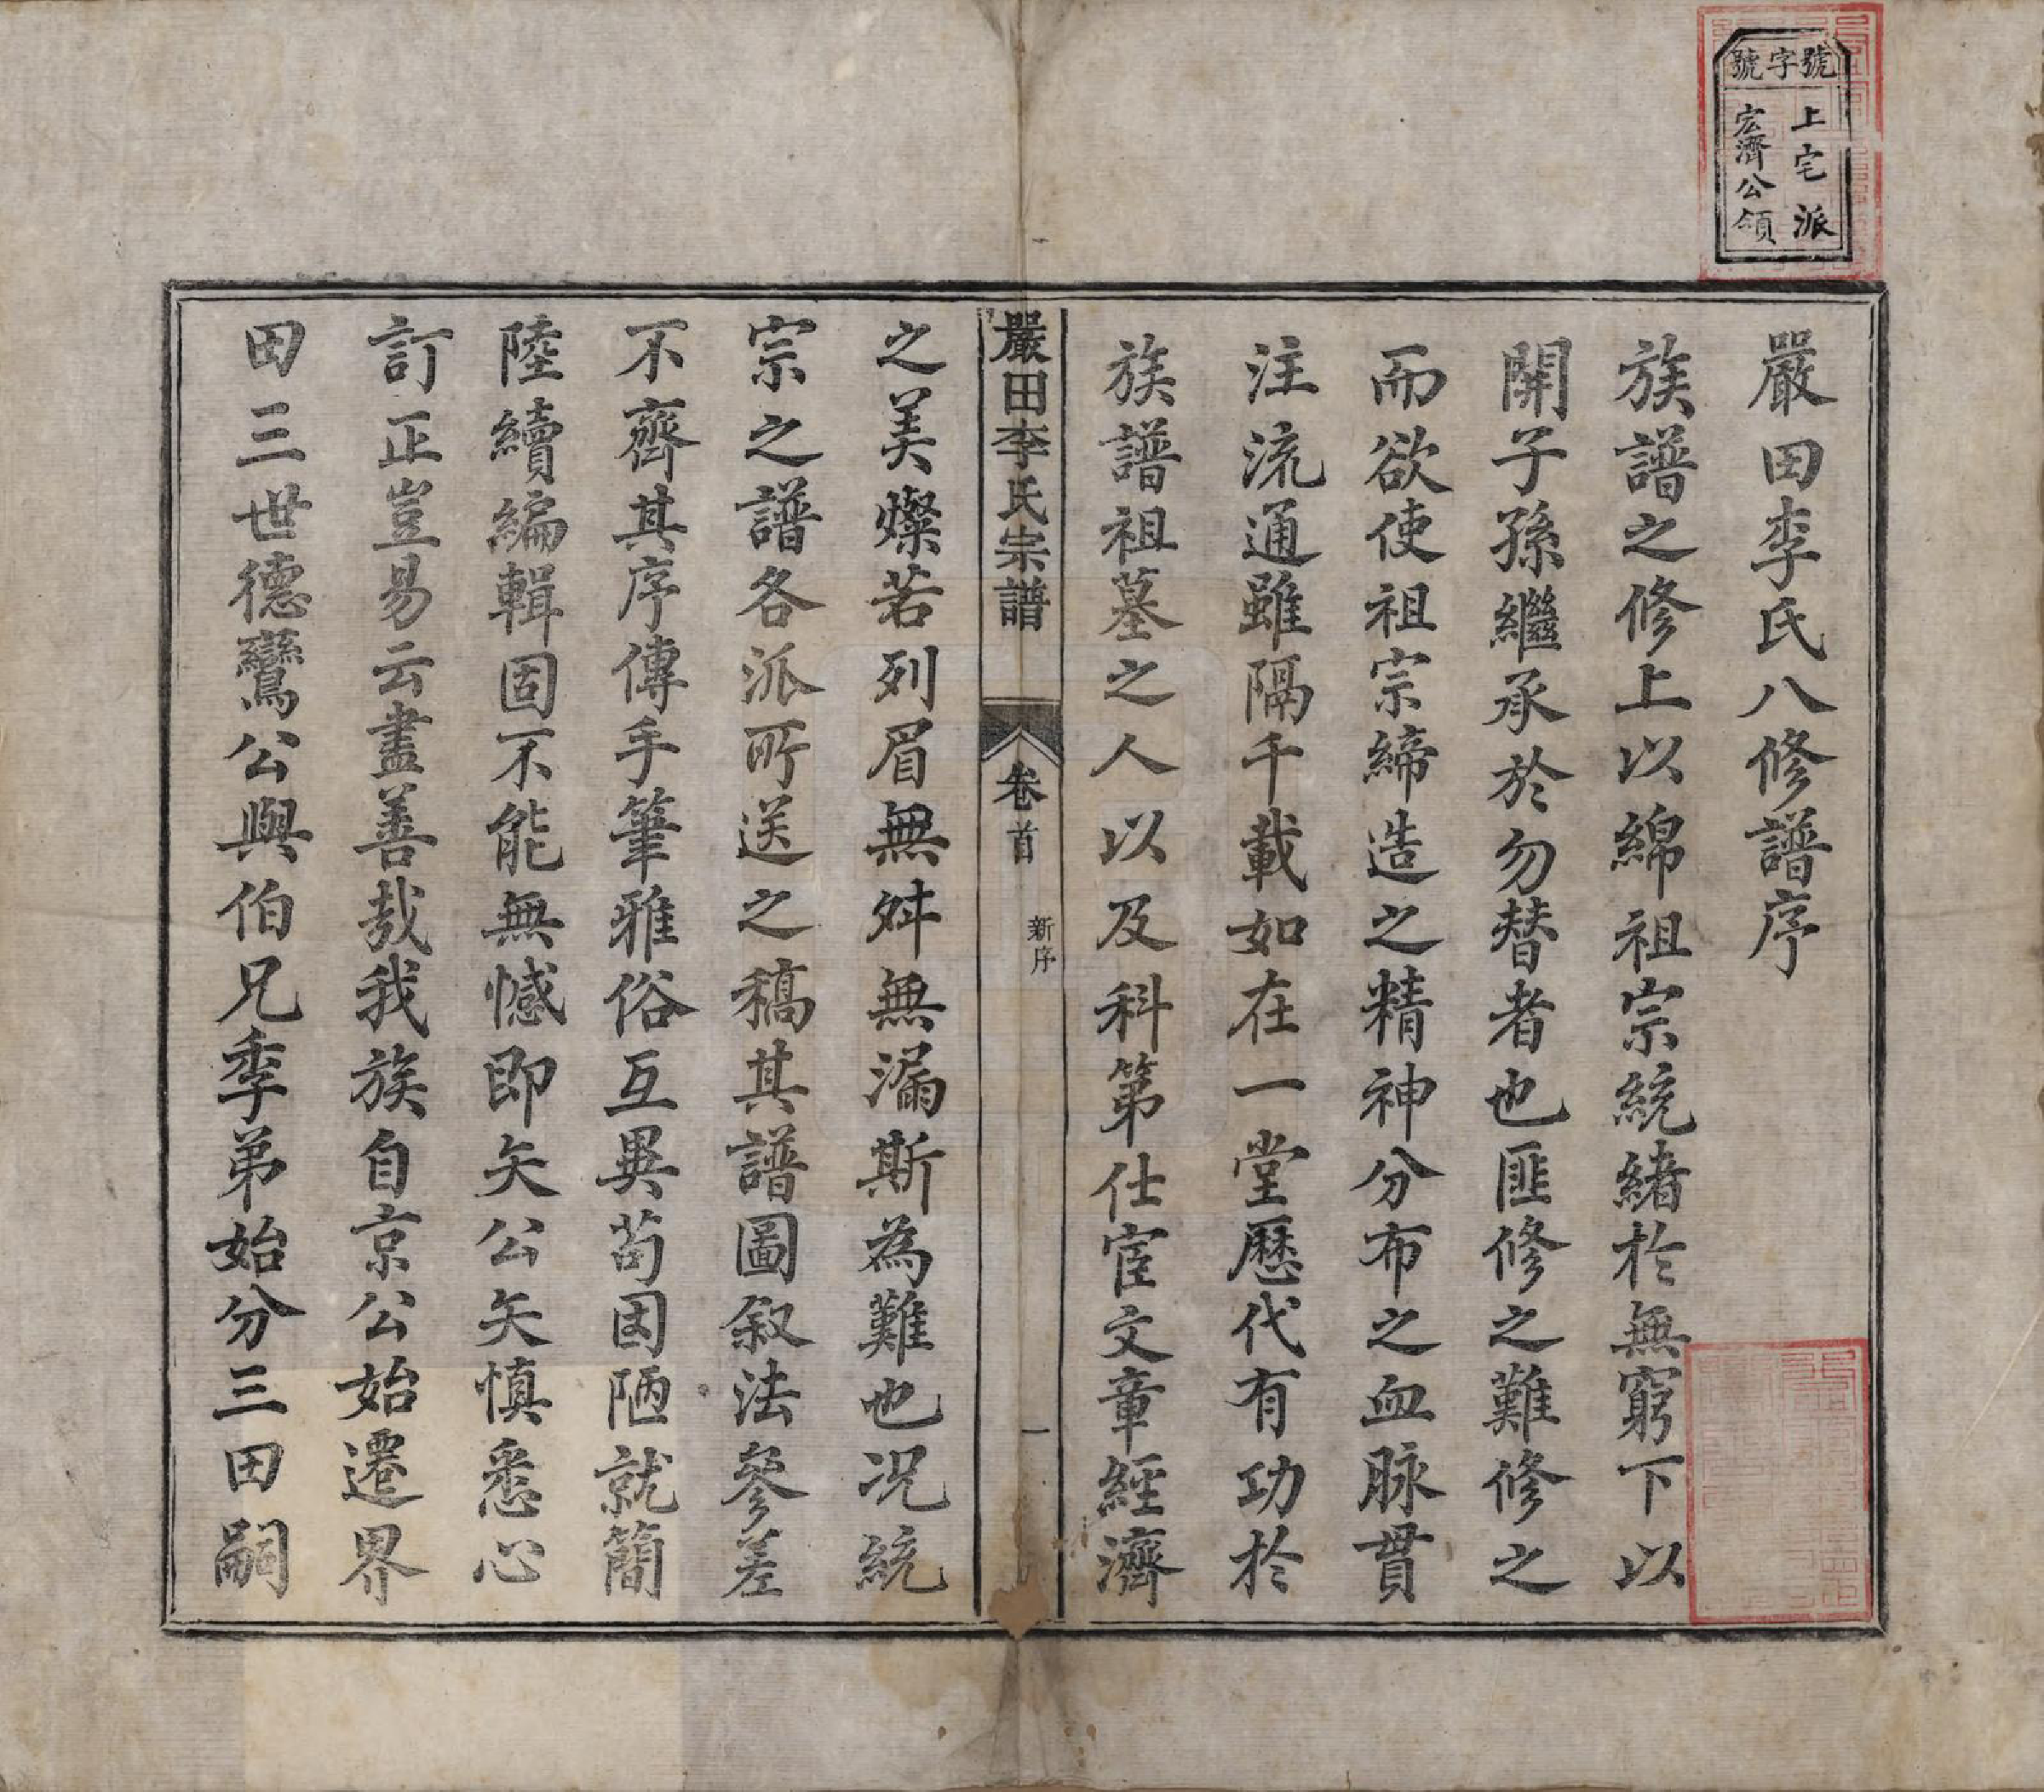 號字號
上宅派
宏濟公領
嚴田李氏八修譜序
族譜之修上以綿祖宗統緒於無窮下以
開子孫繼承於勿替者也匪修之難修之
而欲使祖宗締造之精神分布之血脉貫
注流通雖隔千載如在一堂歷代有功於
族譜祖墓之人以及科第仕宦文章經濟
嚴田李氏宗譜
卷首
新序
一
之美燦若列眉無舛無漏斯為難也況統
宗之譜各派所送之稿其譜圖叙法參差
不齊其序傳手筆雅俗互異苟因陋就簡
陸續編輯固不能無憾即矢公矢慎悉心
訂正豈易云盡善哉我族自京公始遷界
田三世德鸞公與伯兄季弟始分三田嗣